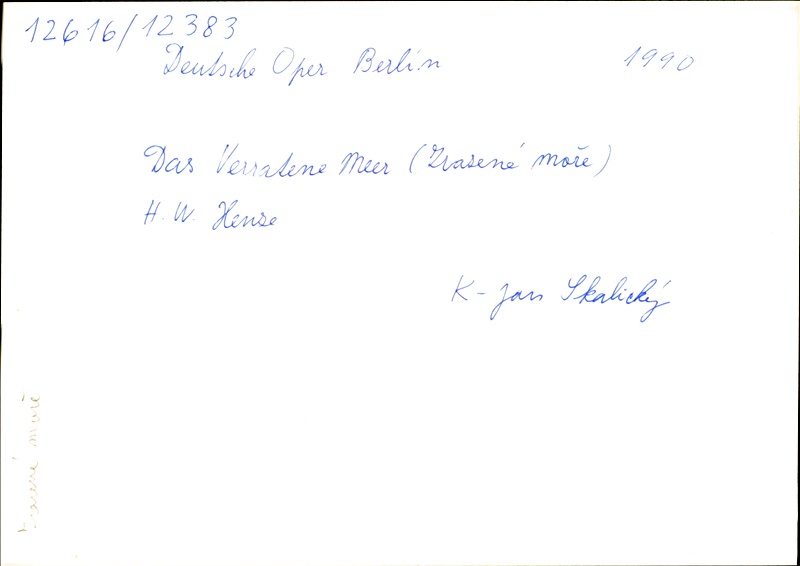 12616/12383
Deutsche Oper Berlin 1990
Das Verratene Meer (Zrazené moře)
H. W. Henze
K - Jan Skalický
Zrazené moře